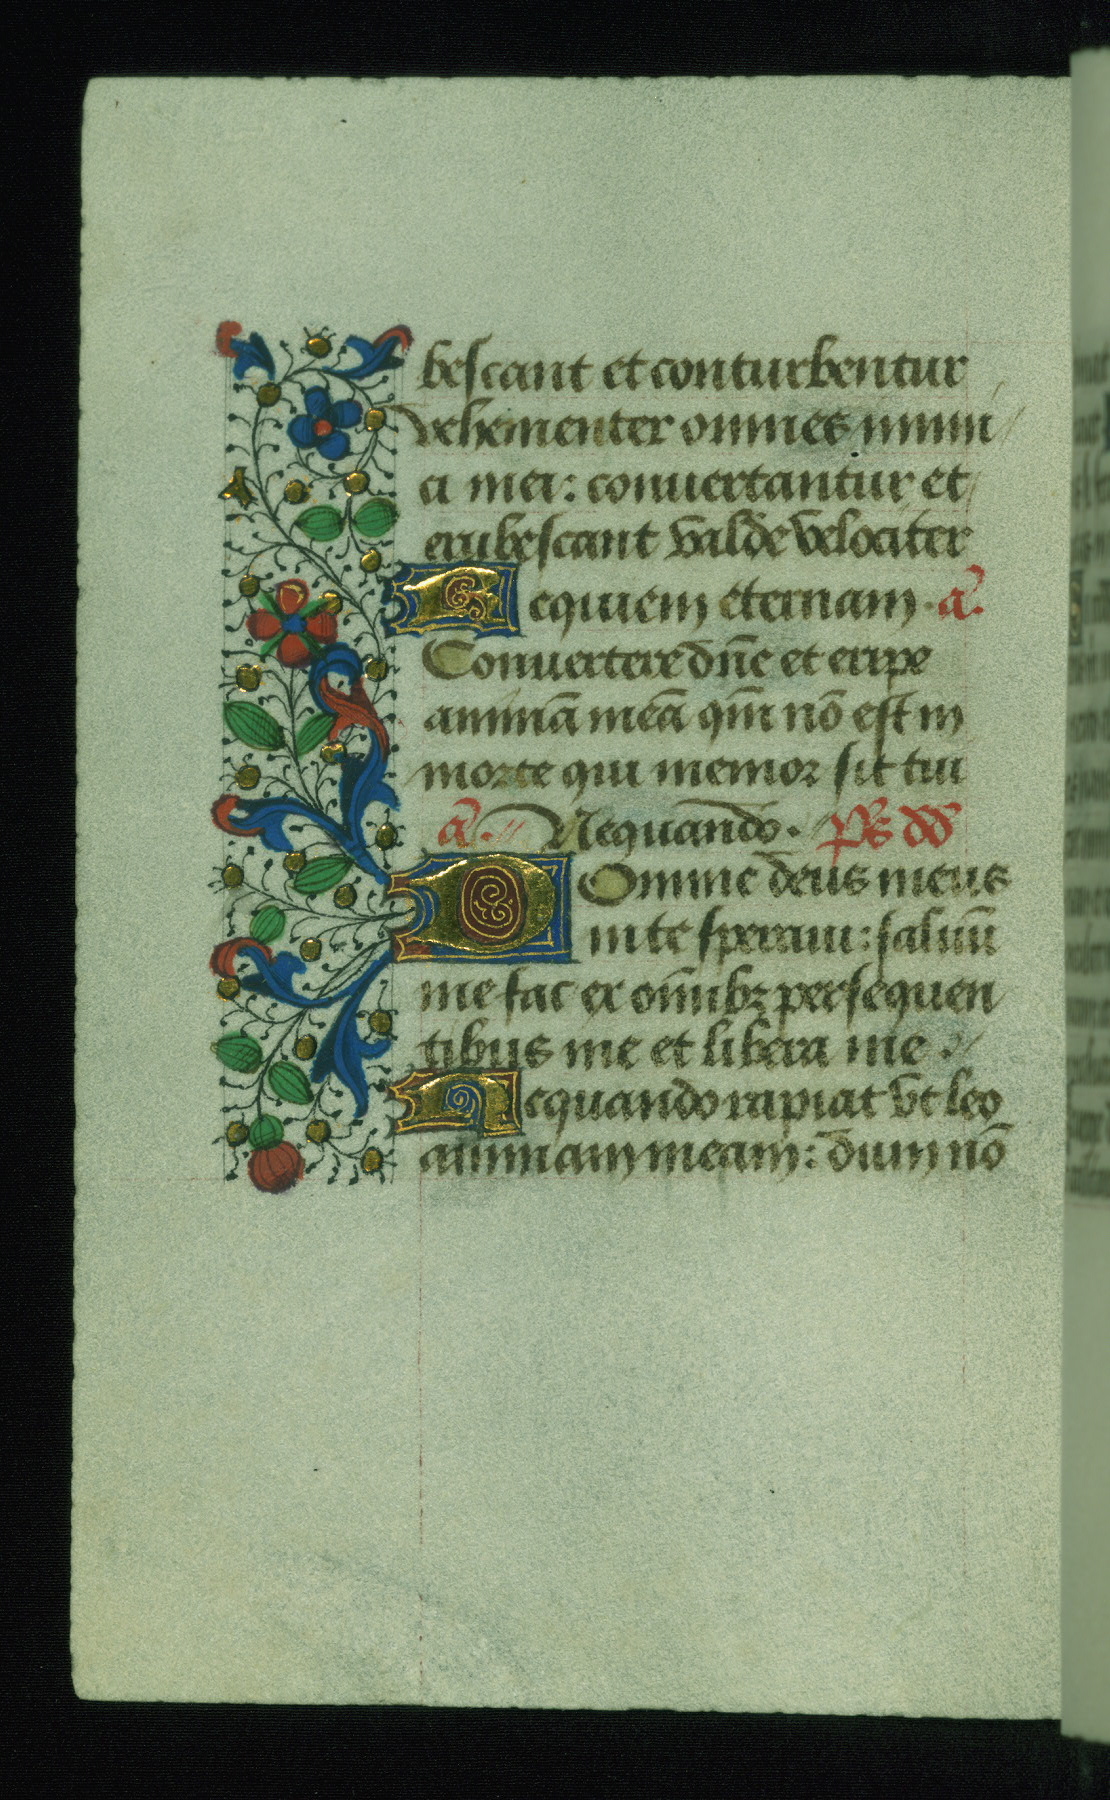 bescant et conturbentur
vehementer omnes inimi
ci mei: conuertantur et
erubescant valde velociter
Requiem eternam. a͞.
Conuertere dn̄e et eripe
animā meā qm̄ nō est in
morte qui memor sit tui
a͞. Nequando. p̄s dd̄
Domine deus meus
in te speraui: saluū
me fac ex oīnibꝫ persequen
tibus me et libera me.
Nequando rapiat vt leo
animam meam: dum nō